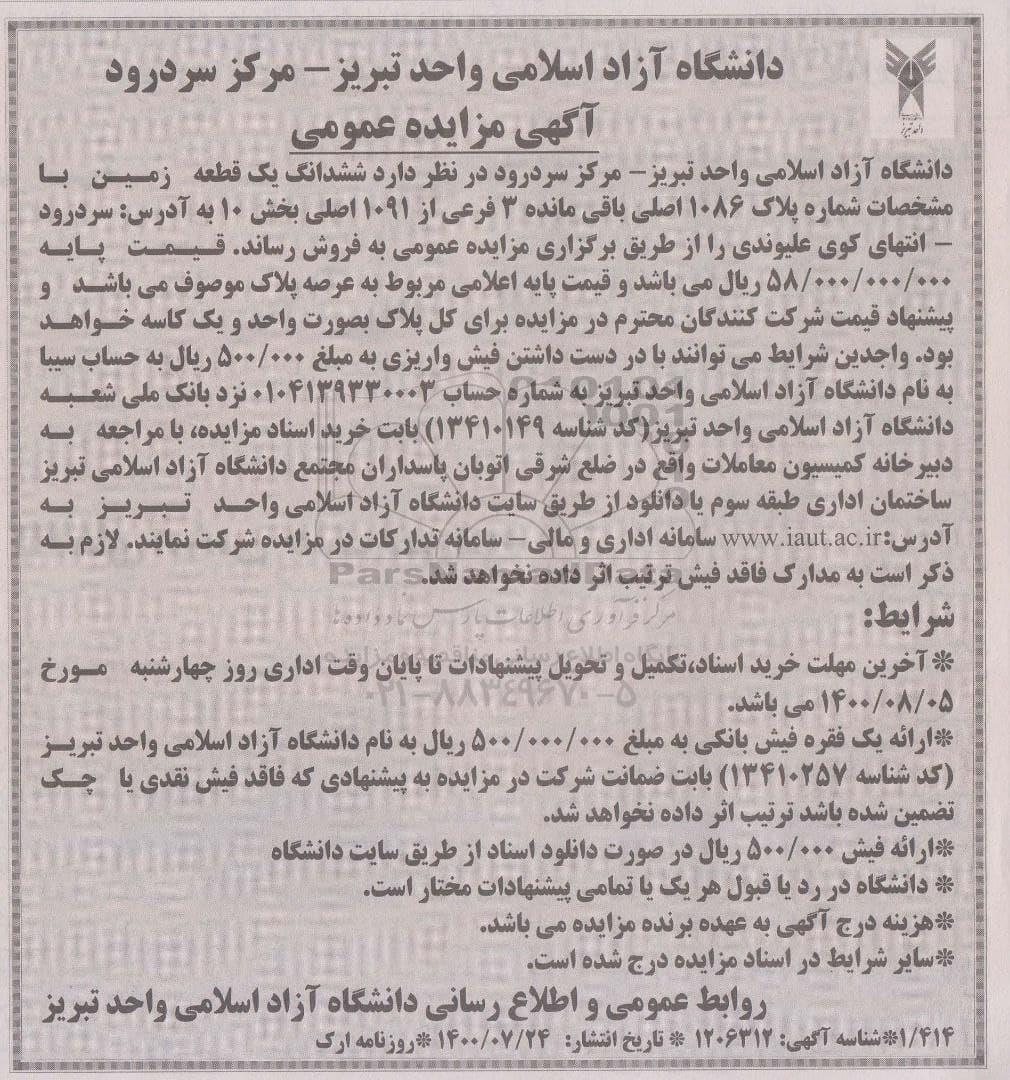 دانشگاه آزاد اسلامی واحد تبریز- مرکز سردرود
آگهی مزایده عمومی
واحد تبریز
دانشگاه آزاد اسلامی واحد تبریز- مرکز سردرود در نظر دارد ششدانگ یک قطعه زمین با
مشخصات شماره پلاک ۱۰۸۶ اصلی باقی مانده ۳ فرعی از ۱۰۹۱ اصلی بخش ۱۰ به آدرس: سردرود
- انتهای کوی علیوندی را از طریق برگزاری مزایده عمومی به فروش رساند. قیمت پایه
۵۸/۰۰۰/۰۰۰/۰۰۰ ریال می باشد و قیمت پایه اعلامی مربوط به عرصه پلاک موصوف می باشد و
پیشنهاد قیمت شرکت کنندگان محترم در مزایده برای کل پلاک بصورت واحد و یک کاسه خواهد
بود. واجدین شرایط می توانند با در دست داشتن فیش واریزی به مبلغ ۵۰۰/۰۰۰ ریال به حساب سیبا
به نام دانشگاه آزاد اسلامی واحد تبریز به شماره حساب ۰۱۰۴۱۳۹۳۳۰۰۰۳ نزد بانک ملی شعبه
دانشگاه آزاد اسلامی واحد تبریز(کد شناسه ۱۳۴۱۰۱۴۹) بابت خرید اسناد مزایده، با مراجعه به
دبیرخانه کمیسیون معاملات واقع در ضلع شرقی اتوبان پاسداران مجتمع دانشگاه آزاد اسلامی تبریز
ساختمان اداری طبقه سوم یا دانلود از طریق سایت دانشگاه آزاد اسلامی واحد تبریز به
آدرس:www.iaut.ac.ir سامانه اداری و مالی- سامانه تدارکات در مزایده شرکت نمایند. لازم به
ذکر است به مدارک فاقد فیش ترتیب اثر داده نخواهد شد.
ParsNamadData
مرکز فرآوری اطلاعات پارس نماد داده ها
شرایط:
* آخرین مهلت خرید اسناد،تکمیل و تحویل پیشنهادات تا پایان وقت اداری روز چهارشنبه مورخ
۰۲۱-۸۸۳۴۹۶۷۰-۵
۱۴۰۰/۰۸/۰۵ می باشد.
*ارائه یک فقره فیش بانکی به مبلغ ۵۰۰/۰۰۰/۰۰۰ ریال به نام دانشگاه آزاد اسلامی واحد تبریز
(کد شناسه ۱۳۴۱۰۲۵۷) بابت ضمانت شرکت در مزایده به پیشنهادی که فاقد فیش نقدی یا چک
تضمین شده باشد ترتیب اثر داده نخواهد شد.
*ارائه فیش ۵۰۰/۰۰۰ ریال در صورت دانلود اسناد از طریق سایت دانشگاه
* دانشگاه در رد یا قبول هر یک یا تمامی پیشنهادات مختار است.
*هزینه درج آگهی به عهده برنده مزایده می باشد.
*سایر شرایط در اسناد مزایده درج شده است.
روابط عمومی و اطلاع رسانی دانشگاه آزاد اسلامی واحد تبریز
۱/۴۱۴*شناسه آگهی: ۱۲۰۶۳۱۲ * تاریخ انتشار: ۱۴۰۰/۰۷/۲۴ *روزنامه ارک